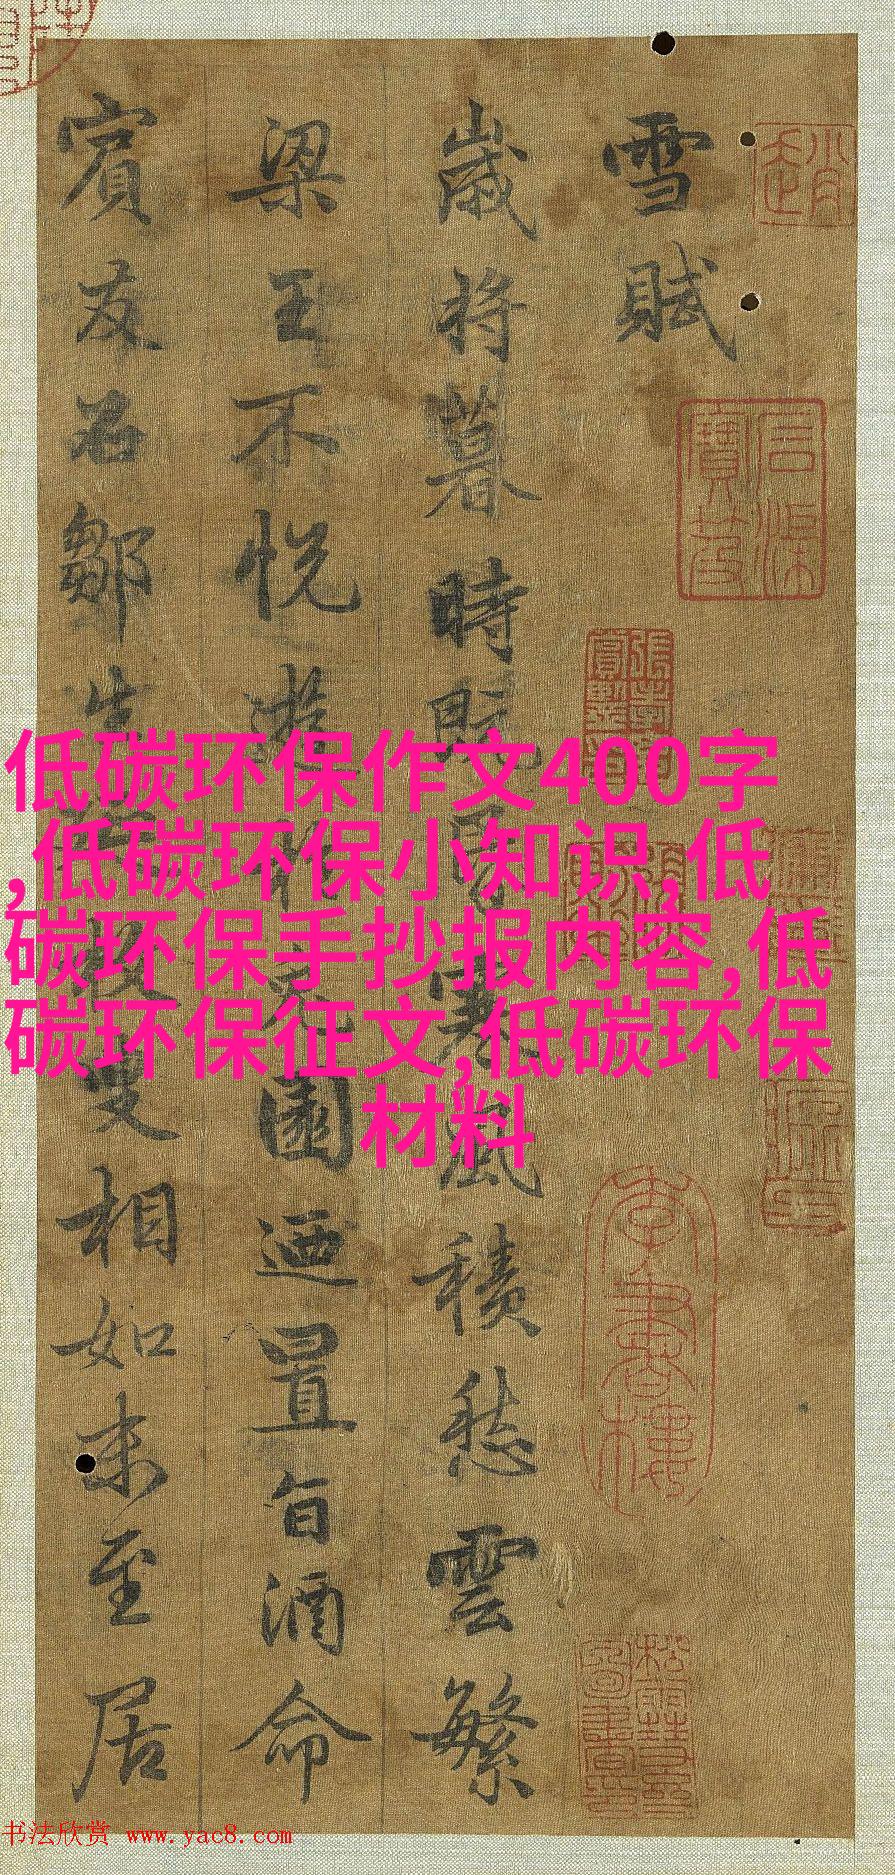 雪賦
歲将暮時既昏寒風積愁雲繁
梁王不悦遊於兔園迺置旨酒命
賓友召鄒生延枚叟相如末至居
低碳环保作文400字
,低碳环保小知识,低
碳环保手抄报内容,低
碳环保征文,低碳环保
材料
书法欣赏 www.yac8.com